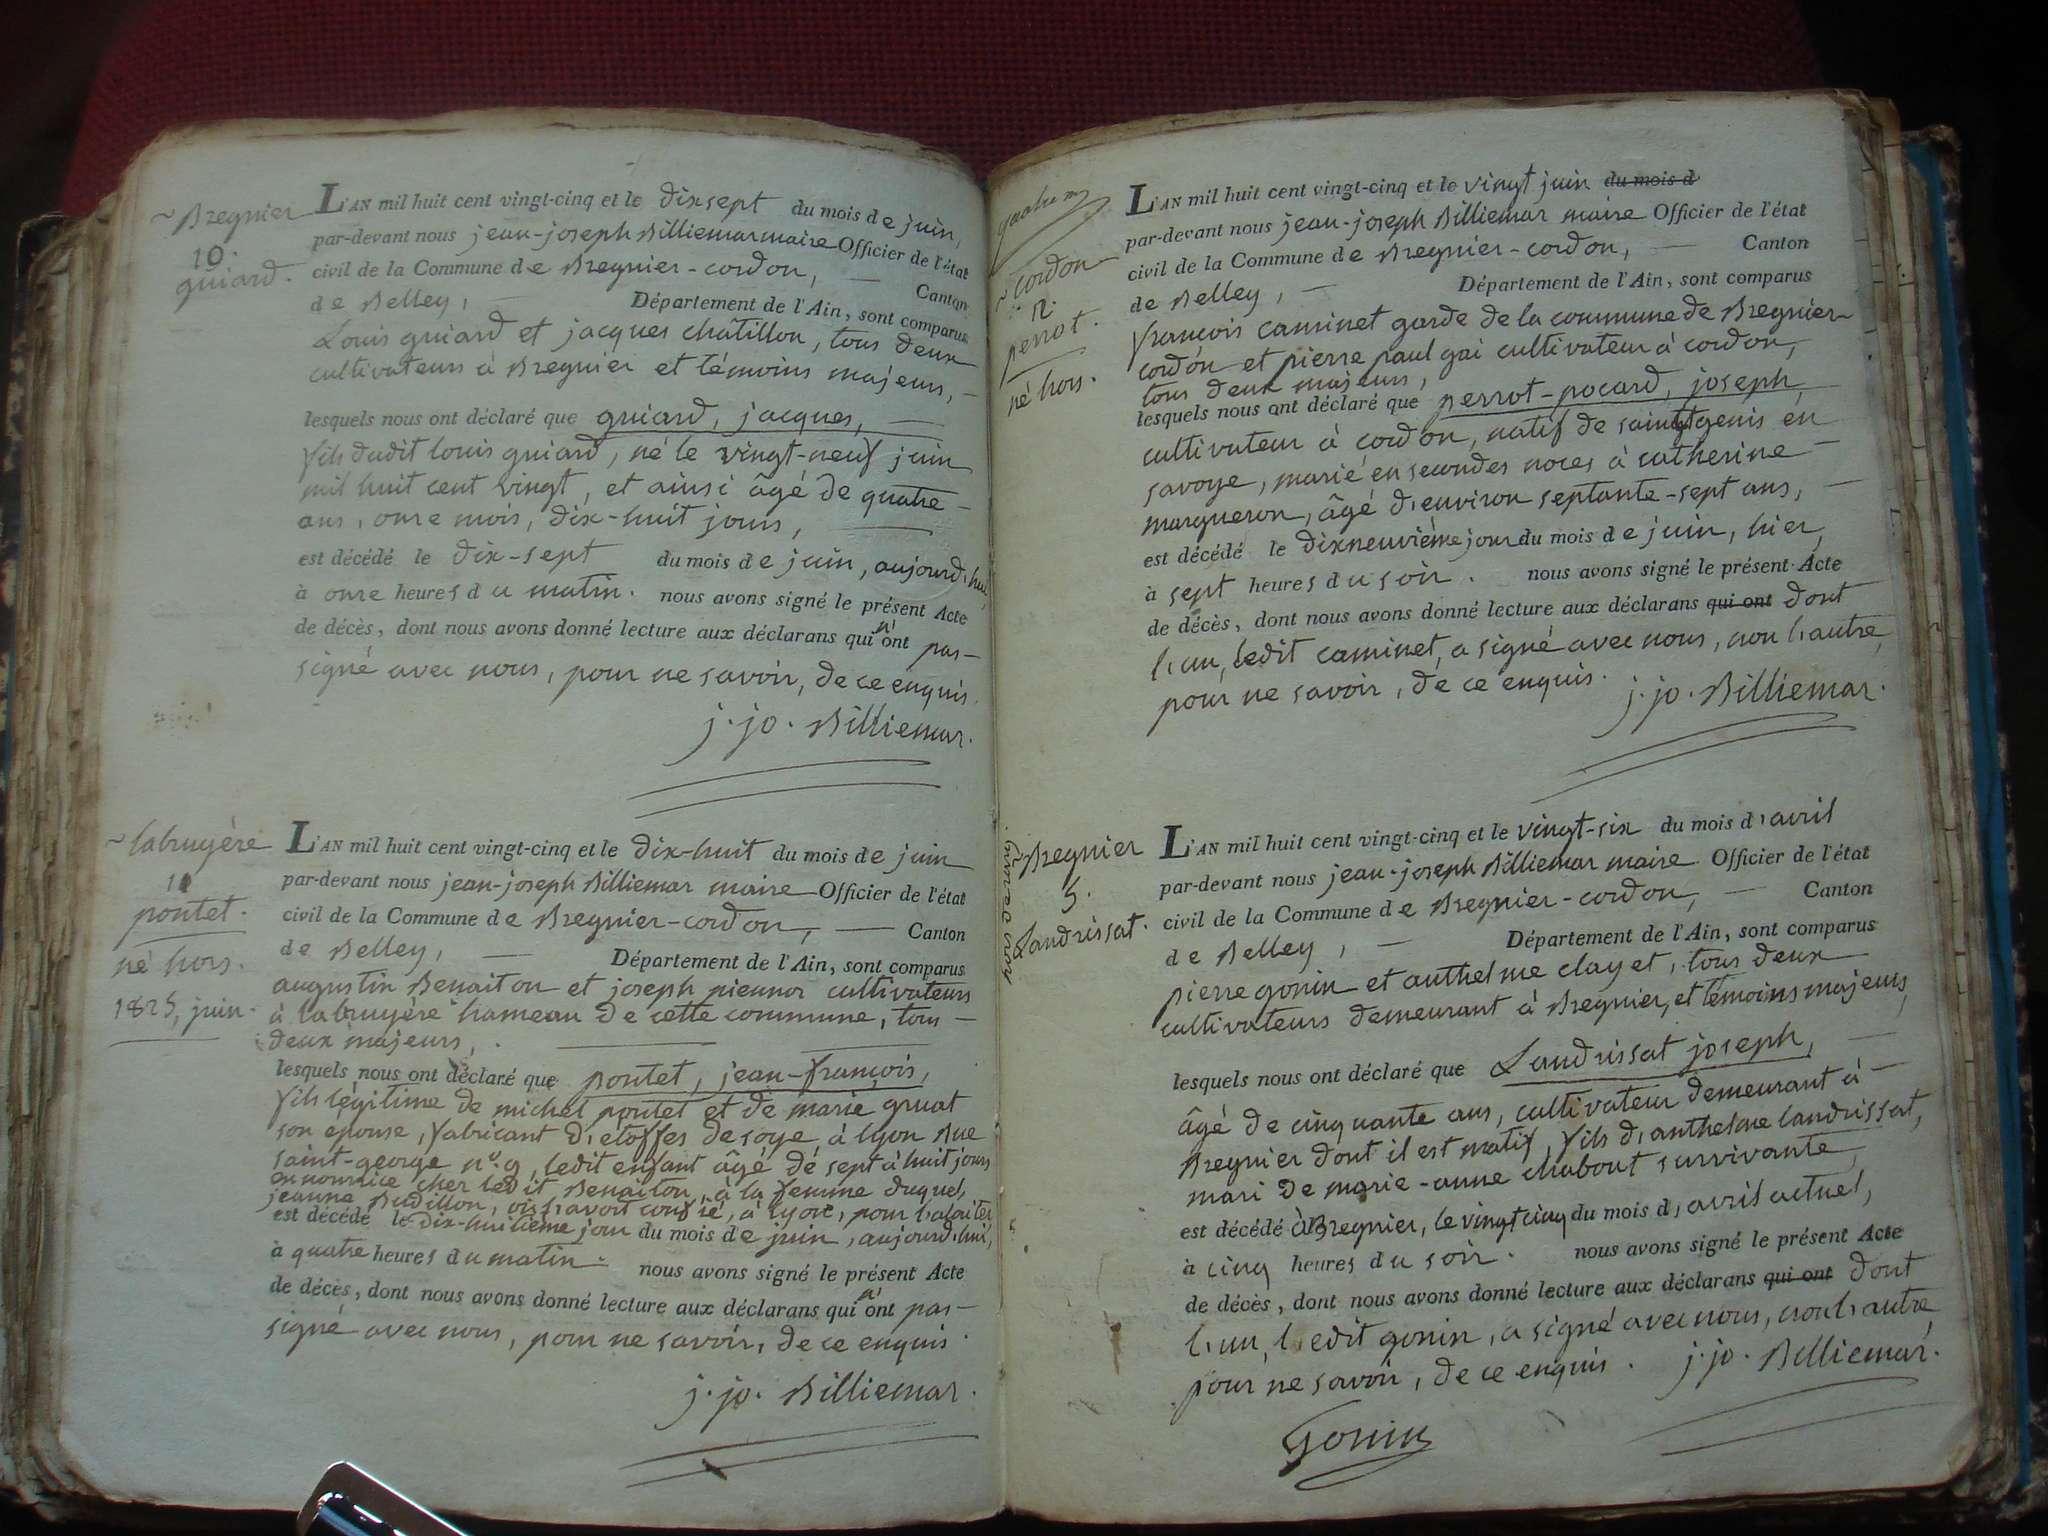 ~ Bregnier
10.
guiard.
L'AN mil huit cent vingt-cinq et le dixsept du mois de juin,
par-devant nous jean-joseph Billiemar maire Officier de l'état
civil de la Commune de Bregnier-cordon, — Canton
de Belley, — Département de l'Ain, sont comparus
Louis guiard et jacques châtillon, tous deux
cultivateurs à Bregnier et témoins majeurs, —
lesquels nous ont déclaré que guiard, jacques, —
fils dudit louis guiard, né le vingt-neuf juin
mil huit cent vingt, et ainsi âgé de quatre —
ans, onze mois, dix-huit jours, —
est décédé le dix-sept du mois de juin, aujourd'hui,
à onze heures du matin. nous avons signé le présent Acte
de décès, dont nous avons donné lecture aux déclarans qui n'ont pas —
signé avec nous, pour ne savoir, de ce enquis.
j. jo. Billiemar.
~ labruyère
11
pontet.
né hors.
1825, juin.
L'AN mil huit cent vingt-cinq et le dix-huit du mois de juin
par-devant nous jean-joseph Billiemar maire Officier de l'état
civil de la Commune de Bregnier-cordon, — Canton
de Belley, — Département de l'Ain, sont comparus
augustin Benaiton et joseph cultivateurs
à labruyère hameau de cette commune, tous —
deux majeurs, —
lesquels nous ont déclaré que pontet, jean-françois,
fils légitime de michel pontet et de marie gruat
son epouse, fabricant d'étoffes de soye à lyon Rue
saint-george n.° 9, ledit enfant âgé de sept à huit jours
en nourrice chez ledit Benaiton, à la femme duquel,
jeanne Budillon, on l'avoit confié, à lyon, pour l'alaiter
est décédé le dix-huitième jour du mois de juin, aujourd'hui,
à quatre heures du matin. nous avons signé le présent Acte
de décès, dont nous avons donné lecture aux déclarans qui n'ont pas —
signé avec nous, pour ne savoir, de ce enquis.
j. jo. Billiemar.
~ cordon
12.
perrot.
né hors.
L'AN mil huit cent vingt-cinq et le vingt juin du mois d
par-devant nous jean-joseph Billiemar maire Officier de l'état
civil de la Commune de Bregnier-cordon, — Canton
de Belley, — Département de l'Ain, sont comparus
françois caminet garde de la commune de Bregnier-
cordon et pierre paul gai cultivateur à cordon,
tous deux majeurs,
lesquels nous ont déclaré que perrot-pocard, joseph,
cultivateur à cordon, natif de saint genis en
savoye, marié en secondes noces à catherine —
margueron, âgé d'environ septante-sept ans, —
est décédé le dixneuvième jour du mois de juin, hier,
à sept heures du soir. nous avons signé le présent Acte
de décès, dont nous avons donné lecture aux déclarans qui ont dont
l'un, ledit caminet, a signé avec nous, non l'autre,
pour ne savoir, de ce enquis. j. jo. Billiemar.
Bregnier
5.
Landrissat.
L'AN mil huit cent vingt-cinq et le vingt-six du mois d'avril
par-devant nous jean-joseph Billiemar maire Officier de l'état
civil de la Commune de Bregnier-cordon, — Canton
de Belley, — Département de l'Ain, sont comparus
pierre gonin et anthelme clayet, tous deux
cultivateurs demeurant à Bregnier, et témoins majeurs,
lesquels nous ont déclaré que Landrissat joseph, —
âgé de cinquante ans, cultivateur demeurant à —
Bregnier dont il est natif, fils d'anthelme landrissat,
mari de marie-anne chabout survivante,
est décédé à Bregnier, le vingt cinq du mois d'avril actuel,
à cinq heures du soir. nous avons signé le présent Acte
de décès, dont nous avons donné lecture aux déclarans qui ont dont
l'un, ledit gonin, a signé avec nous, non l'autre,
pour ne savoir, de ce enquis. j. jo. Billiemar.
Gonin